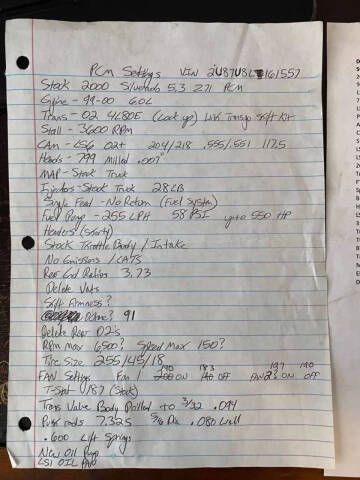 PCM Settings VIN
Stock 2000 Silverado 5.3 Z71 PCM
Engine - 99-00 6.0L
Trans - 02 4L80E (Lock up) with Transgo Shift Kit
Stall - 3600 RPM
CAM - LS6 02+ 204/218 .555/.551 117.5
Heads - 799 Milled .007"
MAP - Stock Truck
Injectors - Stock Truck 28LB
Single Feed - No Return (Fuel System)
Fuel Pump - 255 LPH 58 PSI up to 550 HP
Headers (shorty)
Stock Throttle Body / Intake
No Emissions / CATS
Rear End Ratios 3.73
Delete Vats
Shift Firmness?
Octane? 91
Delete Rear O2's
RPM Max 6500? Speed Max 150?
Tire Size 255/45/18
190 183 197 190
FAN Settings Fan 1 ON OFF FAN 2 ON OFF
T-Stat 187 (Stock)
Trans Valve Body Drilled to 3/32 .094
Push rods 7.325 5/16 Dia .080 wall
.600 Lift Springs
New Oil Pump
LS1 OIL PAN